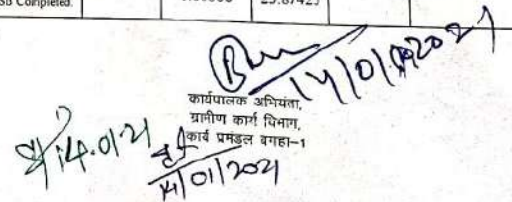 SB Completed.
25.87425
14/01/2021
कार्यपालक अभियंता,
ग्रामीण कार्य विभाग,
कार्य प्रमंडल बगहा-1
14.01.21
14/01/2021